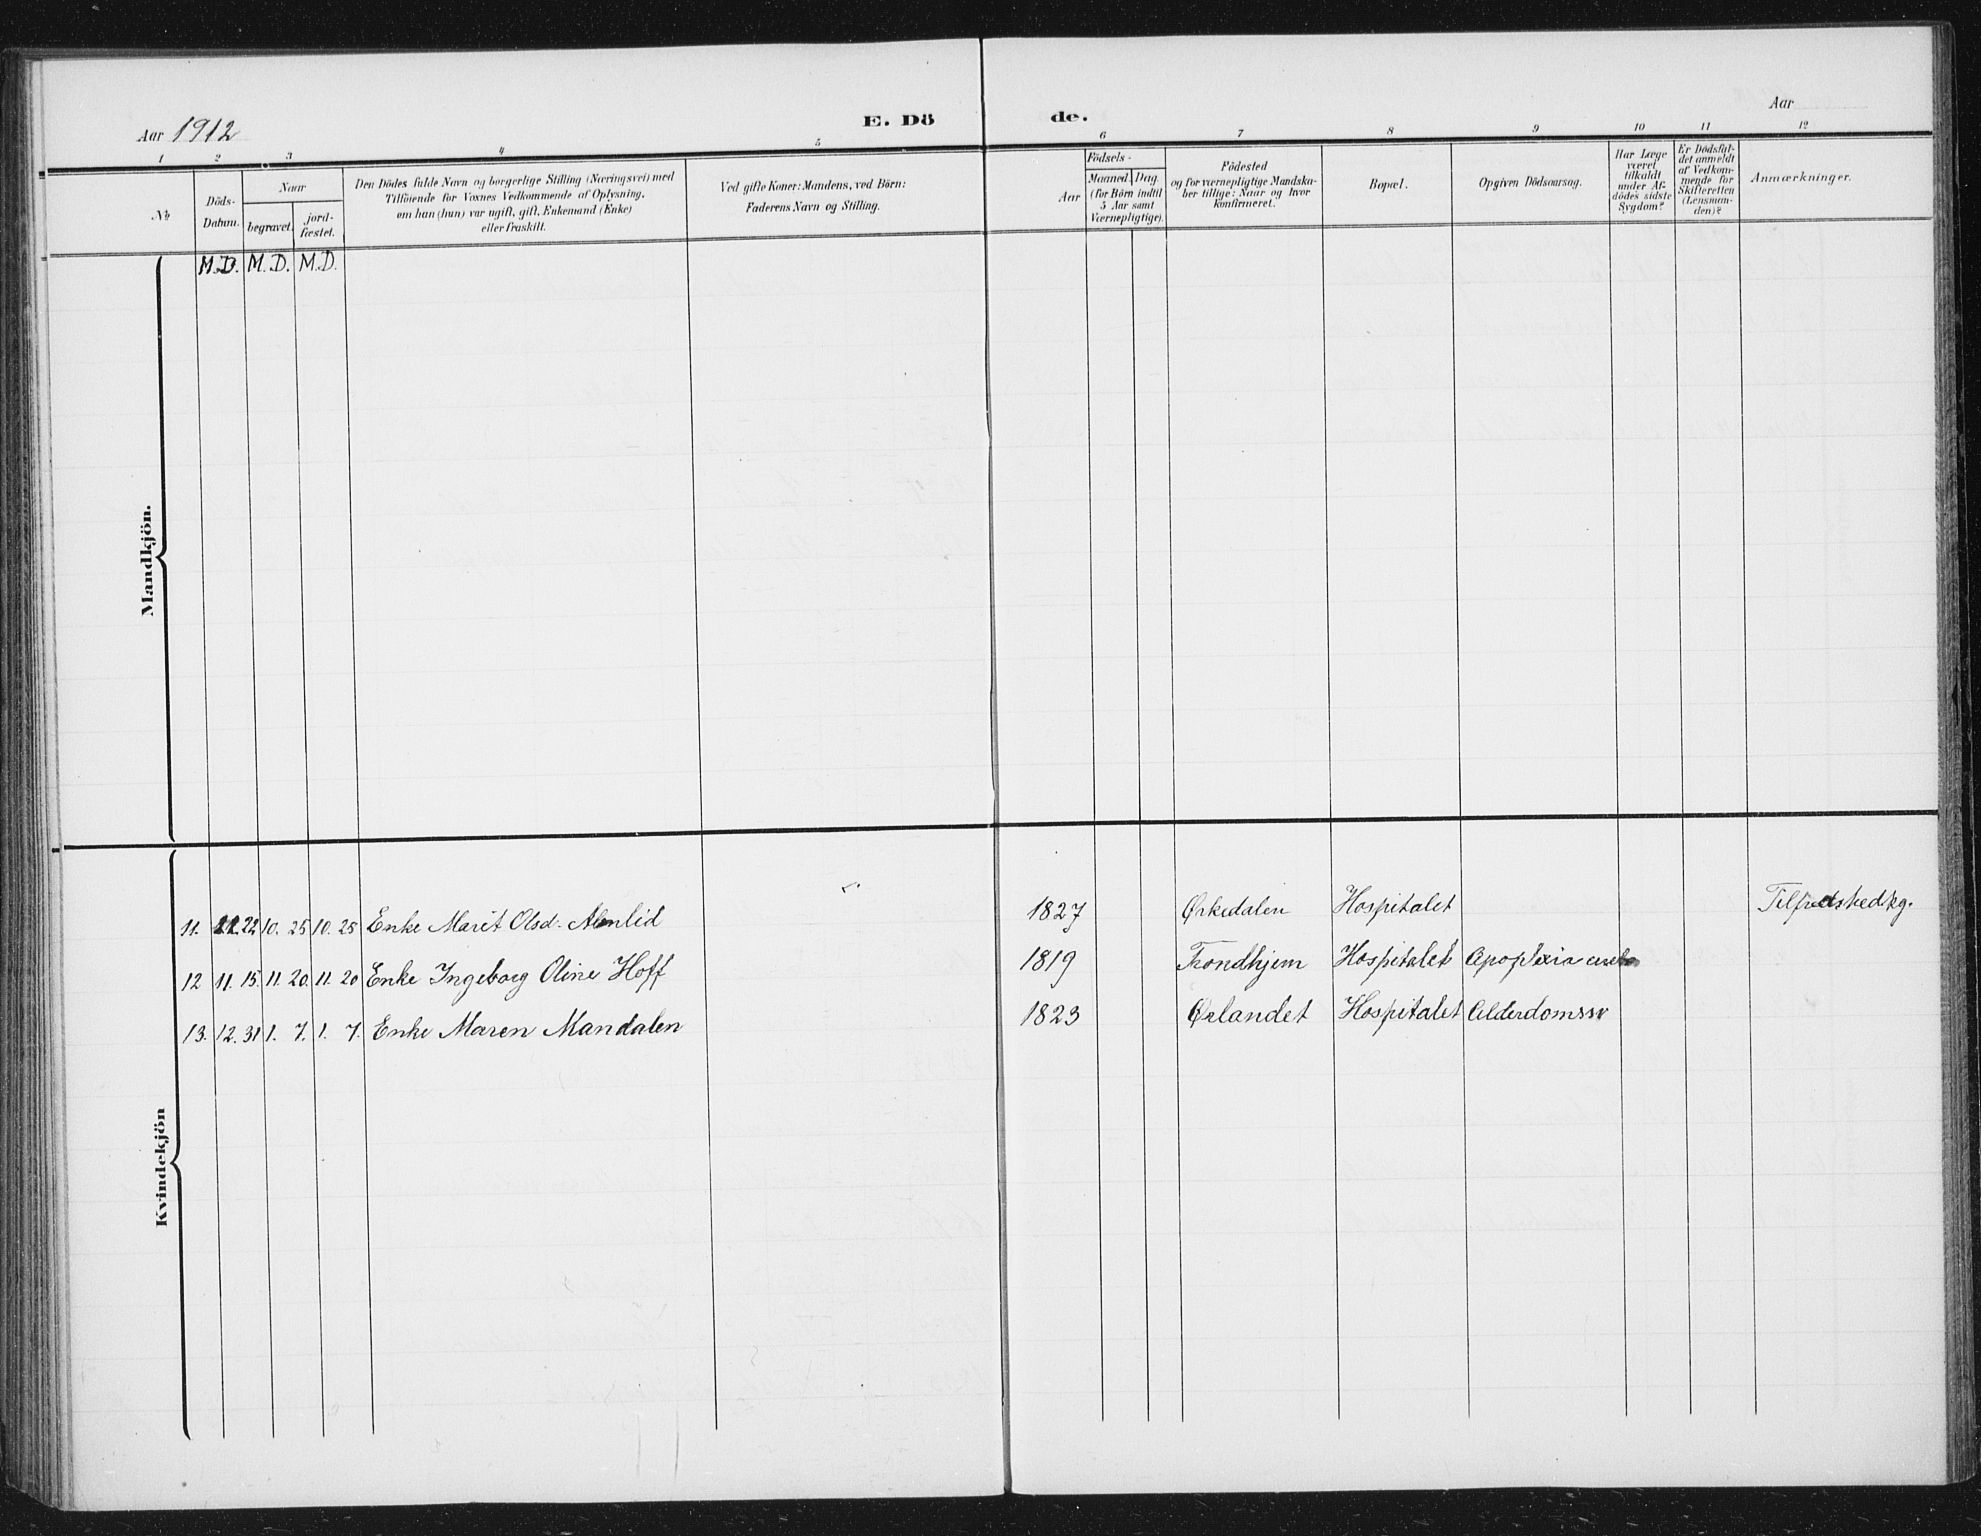 Aar 1912
E. Dö
de.
Aar
1 2 3 4 5 6 7 8 9 10 11 12
No
Döds-
Datum.
Naar
begravet.
jord-
fæstet.
Den Dödes fulde Navn og borgerlige Stilling (Næringsvei) med
Tilföiende for Voxnes Vedkommende af Oplysning,
om han (hun) var ugift, gift, Enkemand (Enke)
eller fraskilt.
Ved gifte Koner: Mandens, ved Börn:
Faderens Navn og Stilling.
Födsels-
Aar
Maaned. Dag.
(for Börn indtil
5 Aar samt
Værnepligtige).
Födested
og for værnepligtige Mandska-
ber tillige: Naar og hvor
konfirmeret.
Bopæl.
Opgiven Dödsaarsag.
Har Læge
været
tilkaldt
under Af-
dödes sidste
Sygdom?
Er Dødsfal-
det anmeldt
af Vedkom-
mende for
Skifteretten
(Lensman-
den)?
Anmærkninger.
M.D. M.D. M.D.
Mandkjön.
11. 22 10. 25 10. 25 Enke Marit Olsd. 1827 Ørkedalen Hospitalet
12 11. 15. 11. 20. 11. 20 Enke Ingeborg Oline Hoff 1819 Trondhjem Hospitalet Apoplexia
13. 12. 31 1. 7. 1. 7. Enke Maren Mandalen 1823 Ørlandet Hospitalet Alderdomssv
Kvindekjön